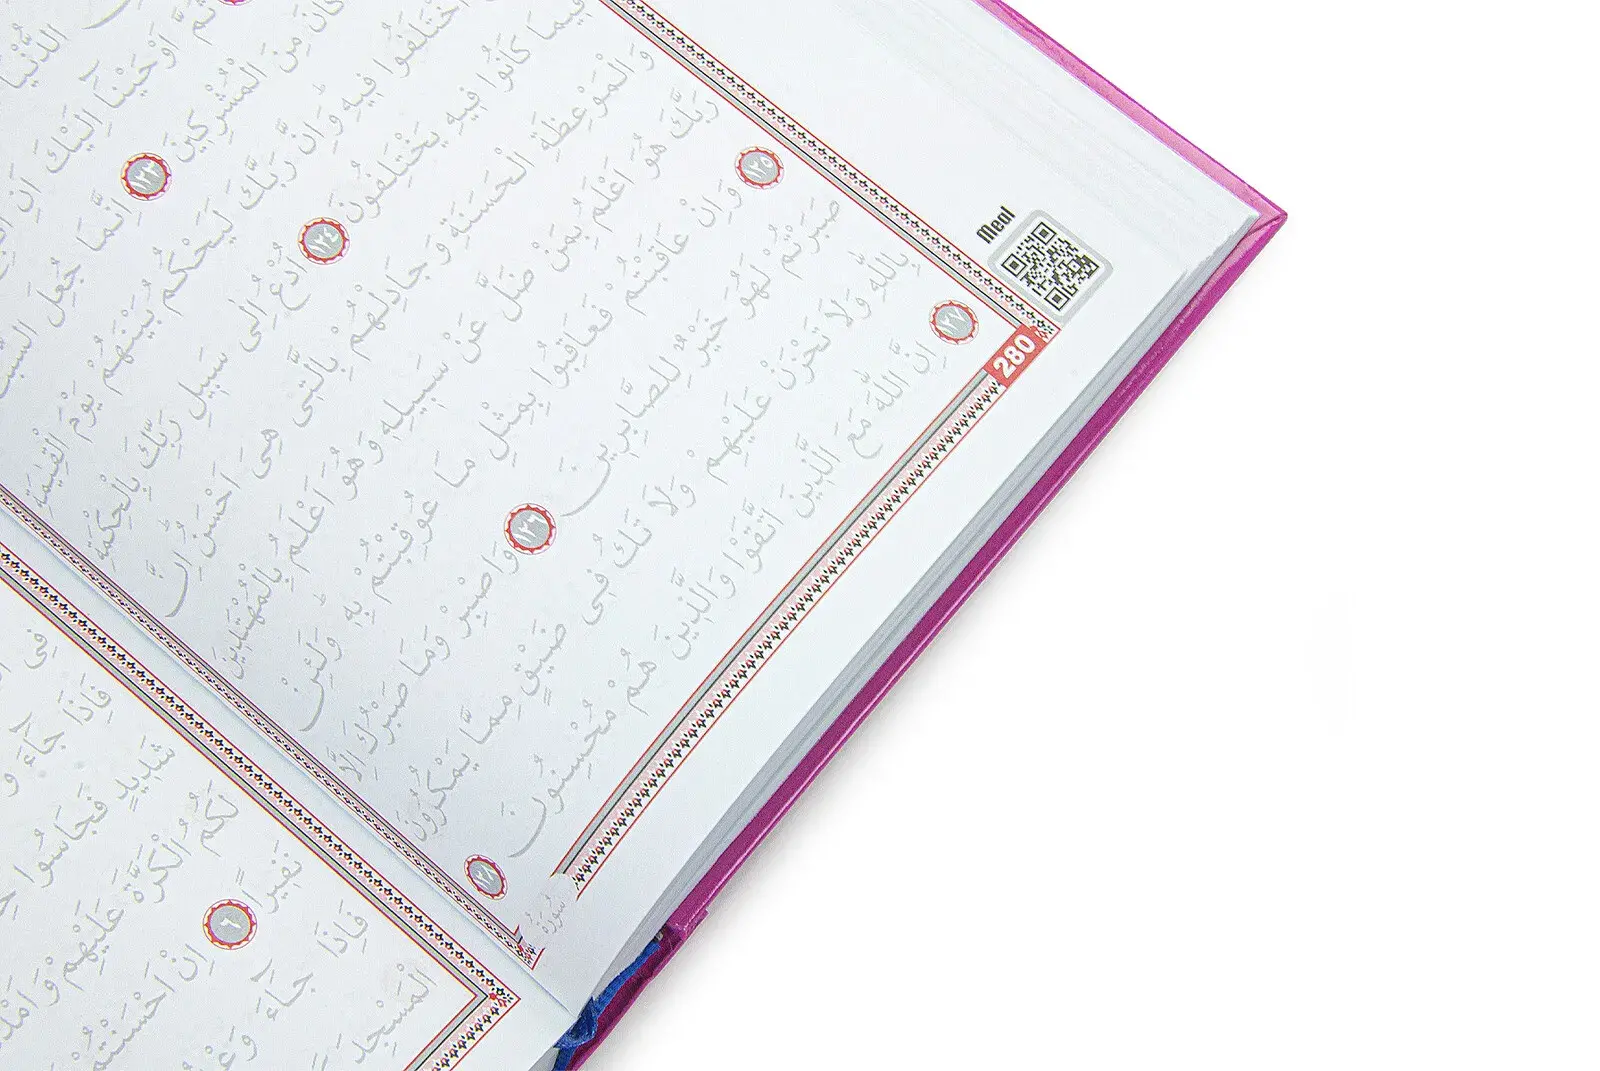 Meal
280
الدُّنْيَا
ثُمَّ اَوْحَيْنَٓا اِلَيْكَ اَنِ
كَانَ مِنَ الْمُشْرِكِينَ ١٢٣ اِنَّمَا جُعِلَ
اخْتَلَفُوا فِيهِ وَاِنَّ رَبَّكَ لَيَحْكُمُ بَيْنَهُمْ يَوْمَ الْقِيٰمَةِ
فِيمَا كَانُوا فِيهِ يَخْتَلِفُونَ ١٢٤ اُدْعُ اِلٰى سَبِيلِ رَبِّكَ بِالْحِكْمَةِ
وَالْمَوْعِظَةِ الْحَسَنَةِ وَجَادِلْهُمْ بِالَّتِى هِىَ اَحْسَنُ اِنَّ
رَبَّكَ هُوَ اَعْلَمُ بِمَنْ ضَلَّ عَنْ سَبِيلِهِ وَهُوَ اَعْلَمُ بِالْمُهْتَدِينَ
١٢٥ وَاِنْ عَاقَبْتُمْ فَعَاقِبُوا بِمِثْلِ مَا عُوقِبْتُمْ بِهِ وَلَئِنْ
صَبَرْتُمْ لَهُوَ خَيْرٌ لِلصَّابِرِينَ ١٢٦ وَاصْبِرْ وَمَا صَبْرُكَ اِلَّا
بِاللّٰهِ وَلَا تَحْزَنْ عَلَيْهِمْ وَلَا تَكُ فِى ضَيْقٍ مِمَّا يَمْكُرُونَ
١٢٧ اِنَّ اللّٰهَ مَعَ الَّذِينَ اتَّقَوْا وَالَّذِينَ هُمْ مُحْسِنُونَ ١٢٨
سُورَةُ
فِى
فَاِذَا جَٓاءَ
شَدِيدٍ فَجَاسُوا
لَكُمُ الْكَرَّةَ عَلَيْهِمْ
نَفِيرًا ٦ اِنْ اَحْسَنْتُمْ
فَاِذَا جَٓاءَ
الْمَسْجِدَ